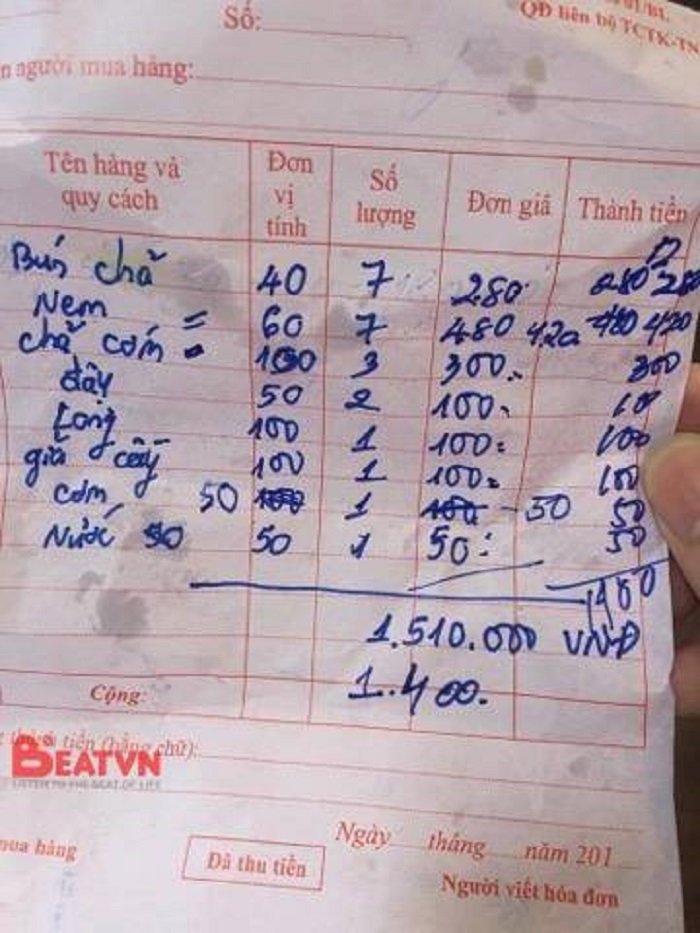 01/BL
Số:
QĐ liên bộ TCTK-TN
n người mua hàng:
Tên hàng và quy cách Đơn vị tính Số lượng Đơn giá Thành tiền
Bún chả 40 7 280 280
Nem = 60 7 480 420 480 420
chả cốm 100 3 300 300
đậy 50 2 100 100
Lòng 100 1 100 100
giả cầy 100 1 100 100
cơm 50 100 1 100 - 50 50
Nước 50 50 1 50 50
1400
1.510.000 VNĐ
1.400.
Cộng:
tiền (bằng chữ):
BEATVN
LISTEN TO THE BEAT OF LIFE
Ngày tháng năm 201
mua hàng
Đã thu tiền
Người viết hóa đơn